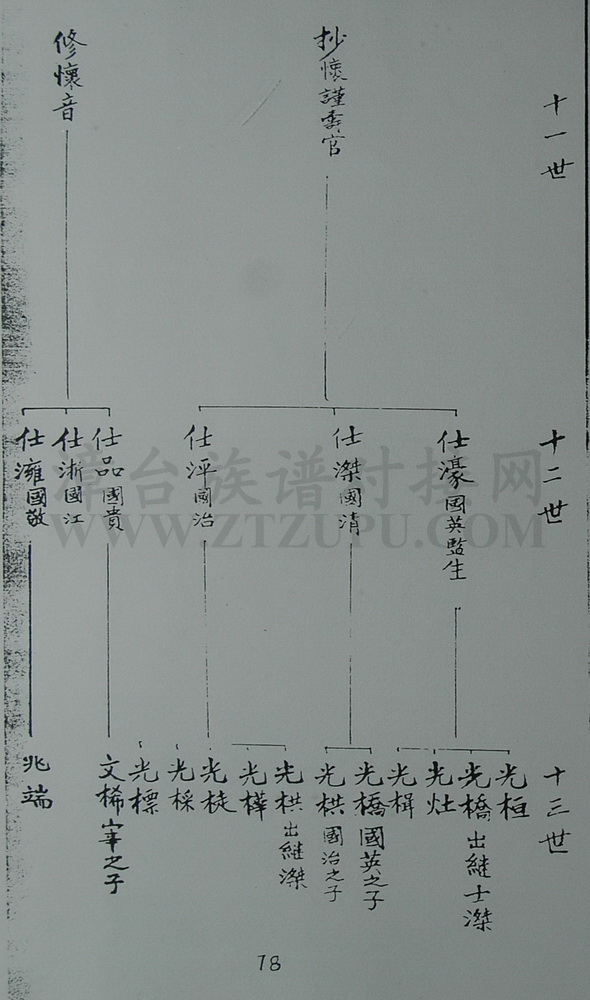 十一世
抄懷謹壽官
修懷音
十二世
仕濠國英監生
仕滐國清
仕泙國治
仕品國貴
仕浙國江
仕濰國敬
十三世
光桓
光橋出継士滐
光灶
光楫
光橋國英之子
光栱國治之子
光栱出継滐
光樺
光梃
光棌
光標
文桸宰之子
兆端
78
章台族谱对接网
WWW.ZTZUPU.COM